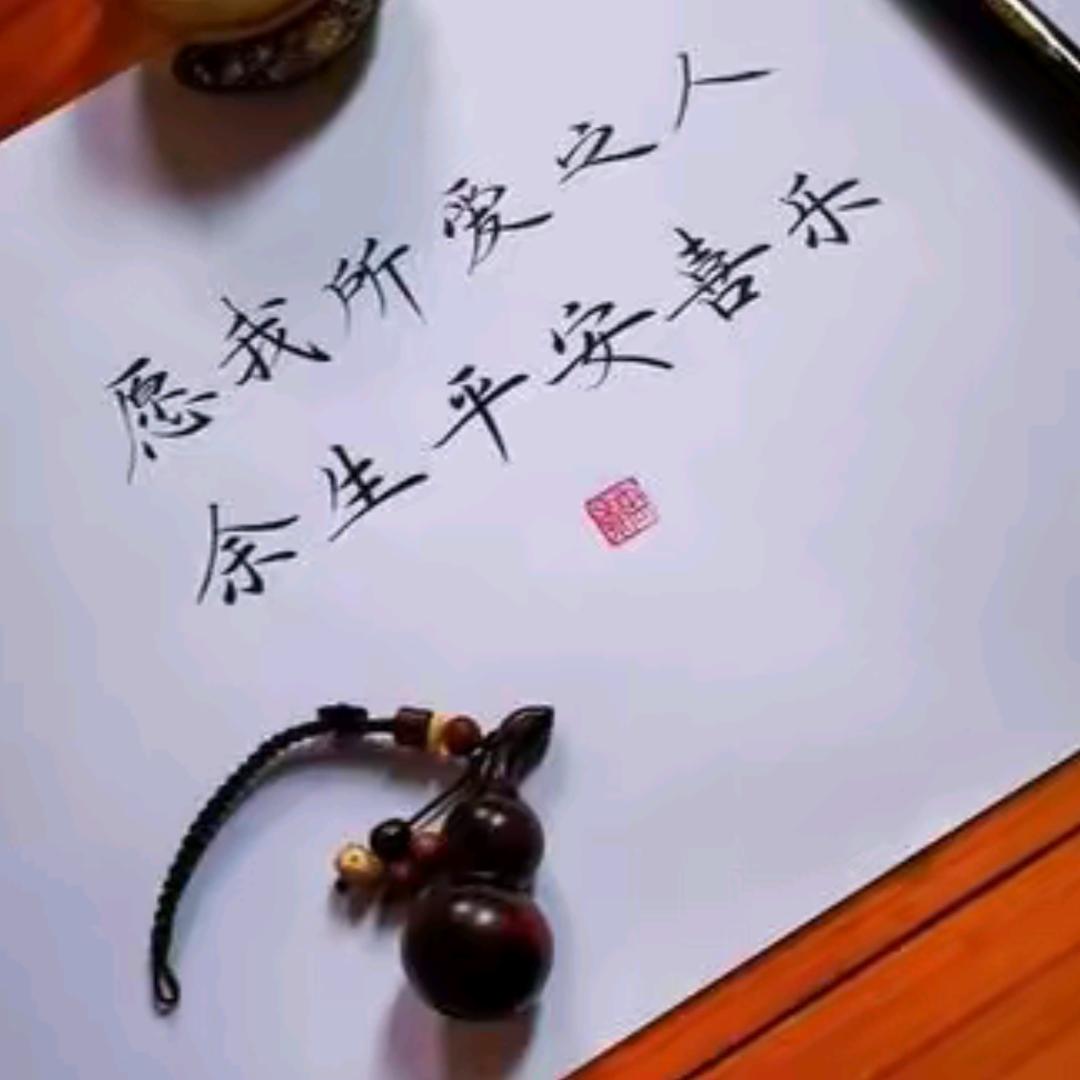 愿我所爱之人
余生平安喜乐